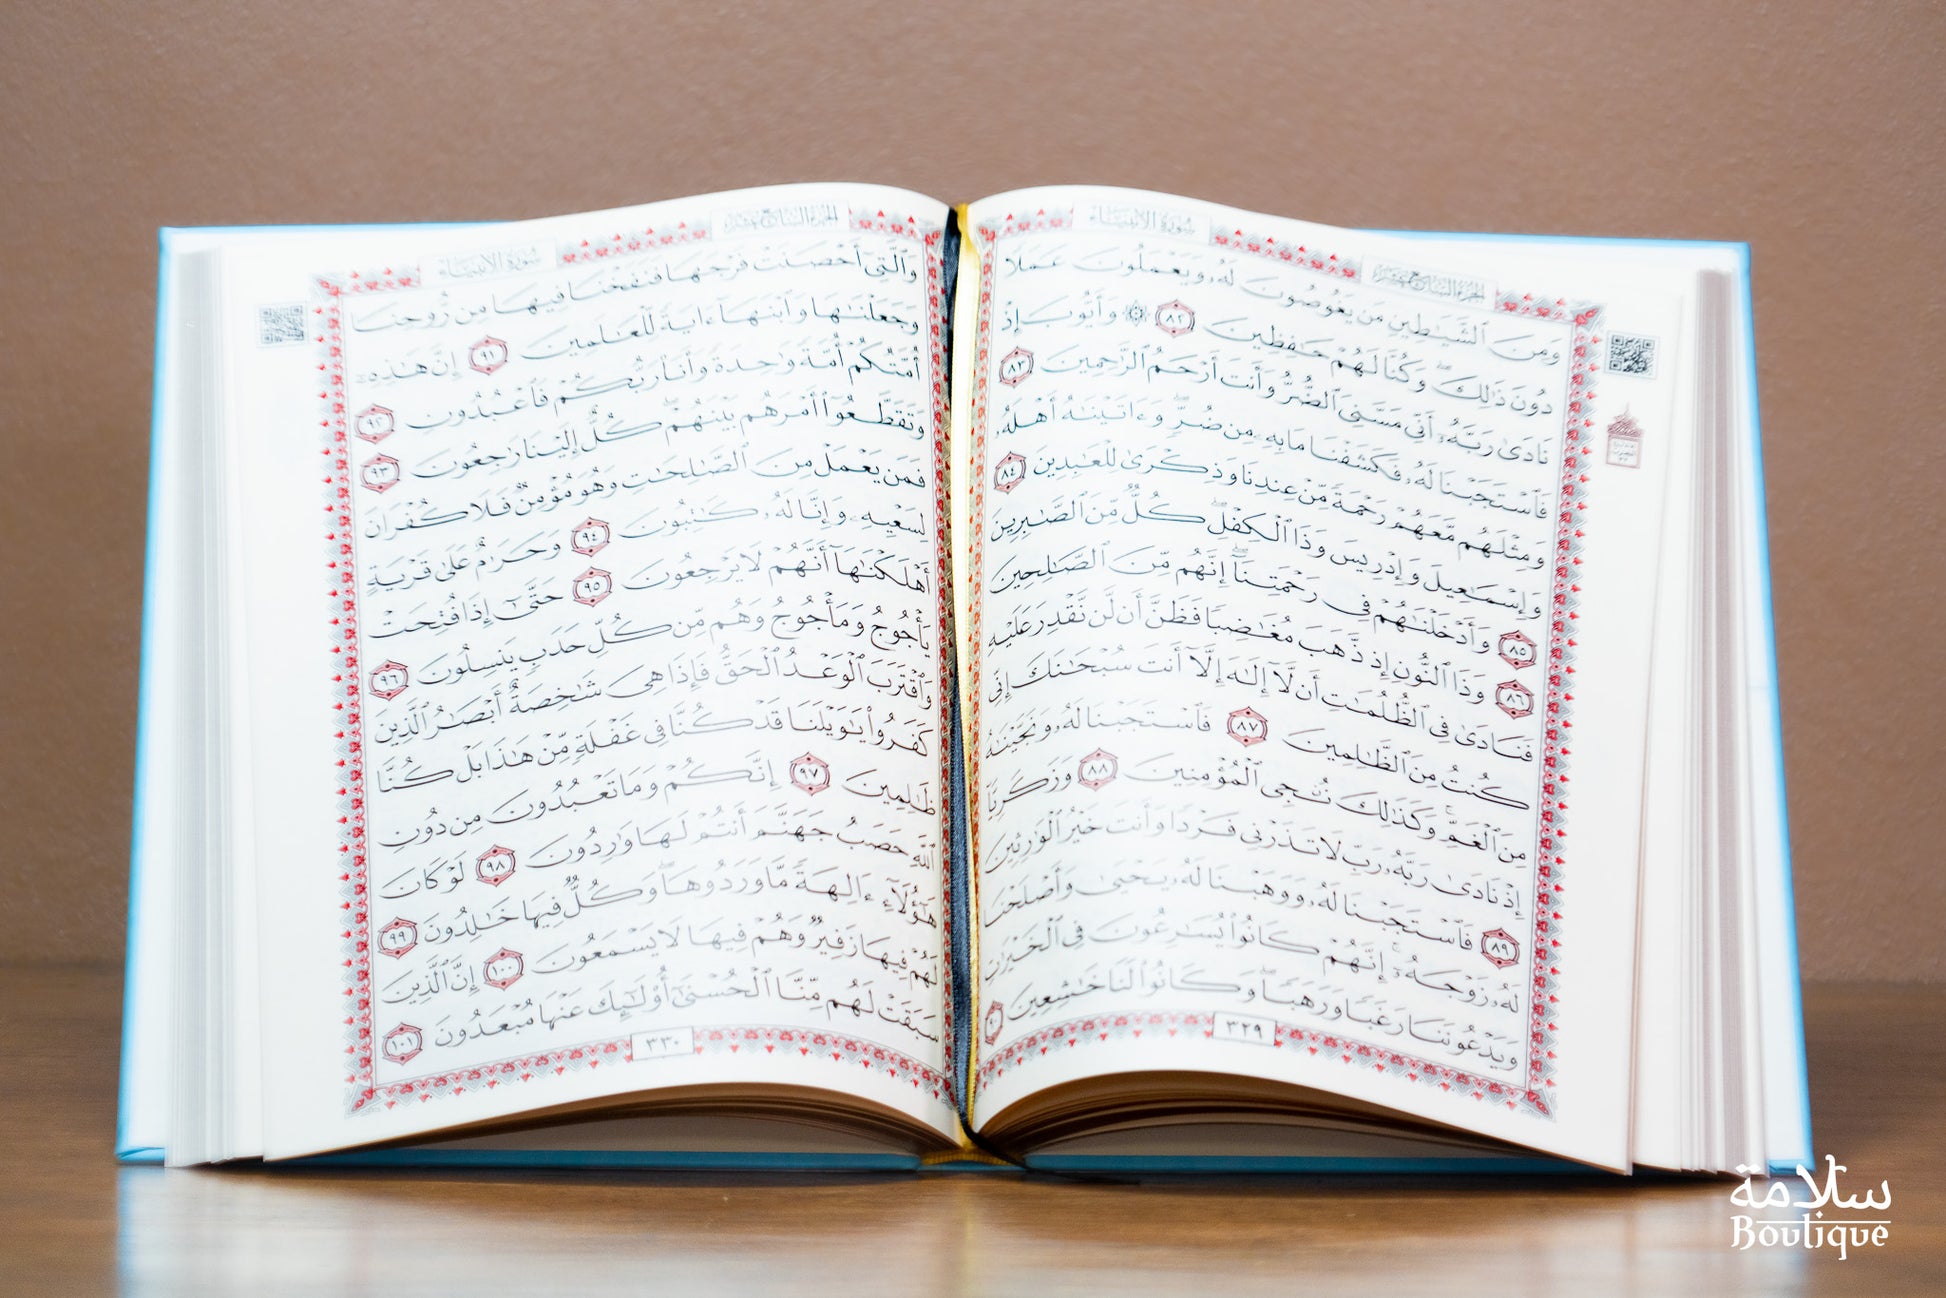 سُورَةُ الأَنبِيَاء
الجُزءُ السَّابِعَ عَشَرَ
وَمِنَ ٱلشَّيَـٰطِينِ مَن يَغُوصُونَ لَهُۥ وَيَعْمَلُونَ عَمَلًا
دُونَ ذَٰلِكَ ۖ وَكُنَّا لَهُمْ حَـٰفِظِينَ ٨٢ ۞ وَأَيُّوبَ إِذْ
نَادَىٰ رَبَّهُۥٓ أَنِّى مَسَّنِىَ ٱلضُّرُّ وَأَنتَ أَرْحَمُ ٱلرَّٰحِمِينَ ٨٣
فَٱسْتَجَبْنَا لَهُۥ فَكَشَفْنَا مَا بِهِۦ مِن ضُرٍّ ۖ وَءَاتَيْنَـٰهُ أَهْلَهُۥ
وَمِثْلَهُم مَّعَهُمْ رَحْمَةً مِّنْ عِندِنَا وَذِكْرَىٰ لِلْعَـٰبِدِينَ ٨٤
وَإِسْمَـٰعِيلَ وَإِدْرِيسَ وَذَا ٱلْكِفْلِ ۖ كُلٌّ مِّنَ ٱلصَّـٰبِرِينَ
٨٥ وَأَدْخَلْنَـٰهُمْ فِى رَحْمَتِنَآ ۖ إِنَّهُم مِّنَ ٱلصَّـٰلِحِينَ
٨٦ وَذَا ٱلنُّونِ إِذ ذَّهَبَ مُغَـٰضِبًا فَظَنَّ أَن لَّن نَّقْدِرَ عَلَيْهِ
فَنَادَىٰ فِى ٱلظُّلُمَـٰتِ أَن لَّآ إِلَـٰهَ إِلَّآ أَنتَ سُبْحَـٰنَكَ إِنِّى
كُنتُ مِنَ ٱلظَّـٰلِمِينَ ٨٧ فَٱسْتَجَبْنَا لَهُۥ وَنَجَّيْنَـٰهُ
مِنَ ٱلْغَمِّ ۚ وَكَذَٰلِكَ نُـۨجِى ٱلْمُؤْمِنِينَ ٨٨ وَزَكَرِيَّآ
إِذْ نَادَىٰ رَبَّهُۥ رَبِّ لَا تَذَرْنِى فَرْدًا وَأَنتَ خَيْرُ ٱلْوَٰرِثِينَ
٨٩ فَٱسْتَجَبْنَا لَهُۥ وَوَهَبْنَا لَهُۥ يَحْيَىٰ وَأَصْلَحْنَا
لَهُۥ زَوْجَهُۥٓ ۚ إِنَّهُمْ كَانُوا۟ يُسَـٰرِعُونَ فِى ٱلْخَيْرَٰتِ
وَيَدْعُونَنَا رَغَبًا وَرَهَبًا ۖ وَكَانُوا۟ لَنَا خَـٰشِعِينَ ٩٠
٣٢٩
الجُزءُ السَّابِعَ عَشَرَ
سُورَةُ الأَنبِيَاء
وَٱلَّتِىٓ أَحْصَنَتْ فَرْجَهَا فَنَفَخْنَا فِيهَا مِن رُّوحِنَا
وَجَعَلْنَـٰهَا وَٱبْنَهَآ ءَايَةً لِّلْعَـٰلَمِينَ ٩١ إِنَّ هَـٰذِهِۦٓ
أُمَّتُكُمْ أُمَّةً وَٰحِدَةً وَأَنَا۠ رَبُّكُمْ فَٱعْبُدُونِ ٩٢
وَتَقَطَّعُوٓا۟ أَمْرَهُم بَيْنَهُمْ ۖ كُلٌّ إِلَيْنَا رَٰجِعُونَ ٩٣
فَمَن يَعْمَلْ مِنَ ٱلصَّـٰلِحَـٰتِ وَهُوَ مُؤْمِنٌ فَلَا كُفْرَانَ
لِسَعْيِهِۦ وَإِنَّا لَهُۥ كَـٰتِبُونَ ٩٤ وَحَرَٰمٌ عَلَىٰ قَرْيَةٍ
أَهْلَكْنَـٰهَآ أَنَّهُمْ لَا يَرْجِعُونَ ٩٥ حَتَّىٰٓ إِذَا فُتِحَتْ
يَأْجُوجُ وَمَأْجُوجُ وَهُم مِّن كُلِّ حَدَبٍ يَنسِلُونَ ٩٦
وَٱقْتَرَبَ ٱلْوَعْدُ ٱلْحَقُّ فَإِذَا هِىَ شَـٰخِصَةٌ أَبْصَـٰرُ ٱلَّذِينَ
كَفَرُوا۟ يَـٰوَيْلَنَا قَدْ كُنَّا فِى غَفْلَةٍ مِّنْ هَـٰذَا بَلْ كُنَّا
ظَـٰلِمِينَ ٩٧ إِنَّكُمْ وَمَا تَعْبُدُونَ مِن دُونِ
ٱللَّهِ حَصَبُ جَهَنَّمَ أَنتُمْ لَهَا وَٰرِدُونَ ٩٨ لَوْ كَانَ
هَـٰٓؤُلَآءِ ءَالِهَةً مَّا وَرَدُوهَا ۖ وَكُلٌّ فِيهَا خَـٰلِدُونَ ٩٩
لَهُمْ فِيهَا زَفِيرٌ وَهُمْ فِيهَا لَا يَسْمَعُونَ ١٠٠ إِنَّ ٱلَّذِينَ
سَبَقَتْ لَهُم مِّنَّا ٱلْحُسْنَىٰٓ أُو۟لَـٰٓئِكَ عَنْهَا مُبْعَدُونَ ١٠١
٣٣٠
سلامة
Boutique